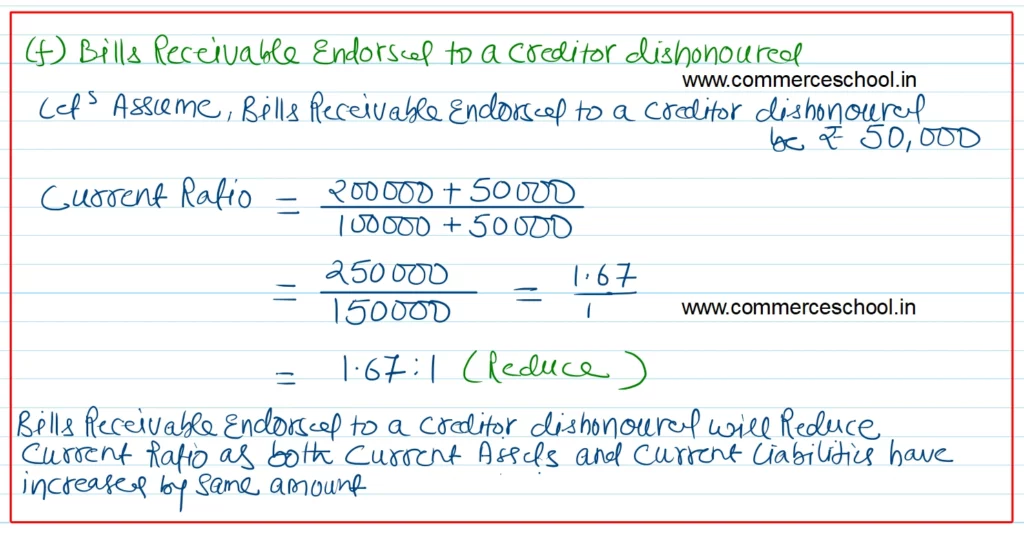 (f) Bills Receivable Endorsed to a Creditor dishonoured
www.commerceschool.in
Let's Assume, Bills Receivable Endorsed to a Creditor dishonoured
be ₹ 50,000
Current Ratio = 200000 + 50000
100000 + 50000
= 250000 = 1.67
150000 1
www.commerceschool.in
= 1.67 : 1 (Reduce)
Bills Receivable Endorsed to a Creditor dishonoured will Reduce
Current Ratio as both Current Assets and Current Liabilities have
increased by same amount